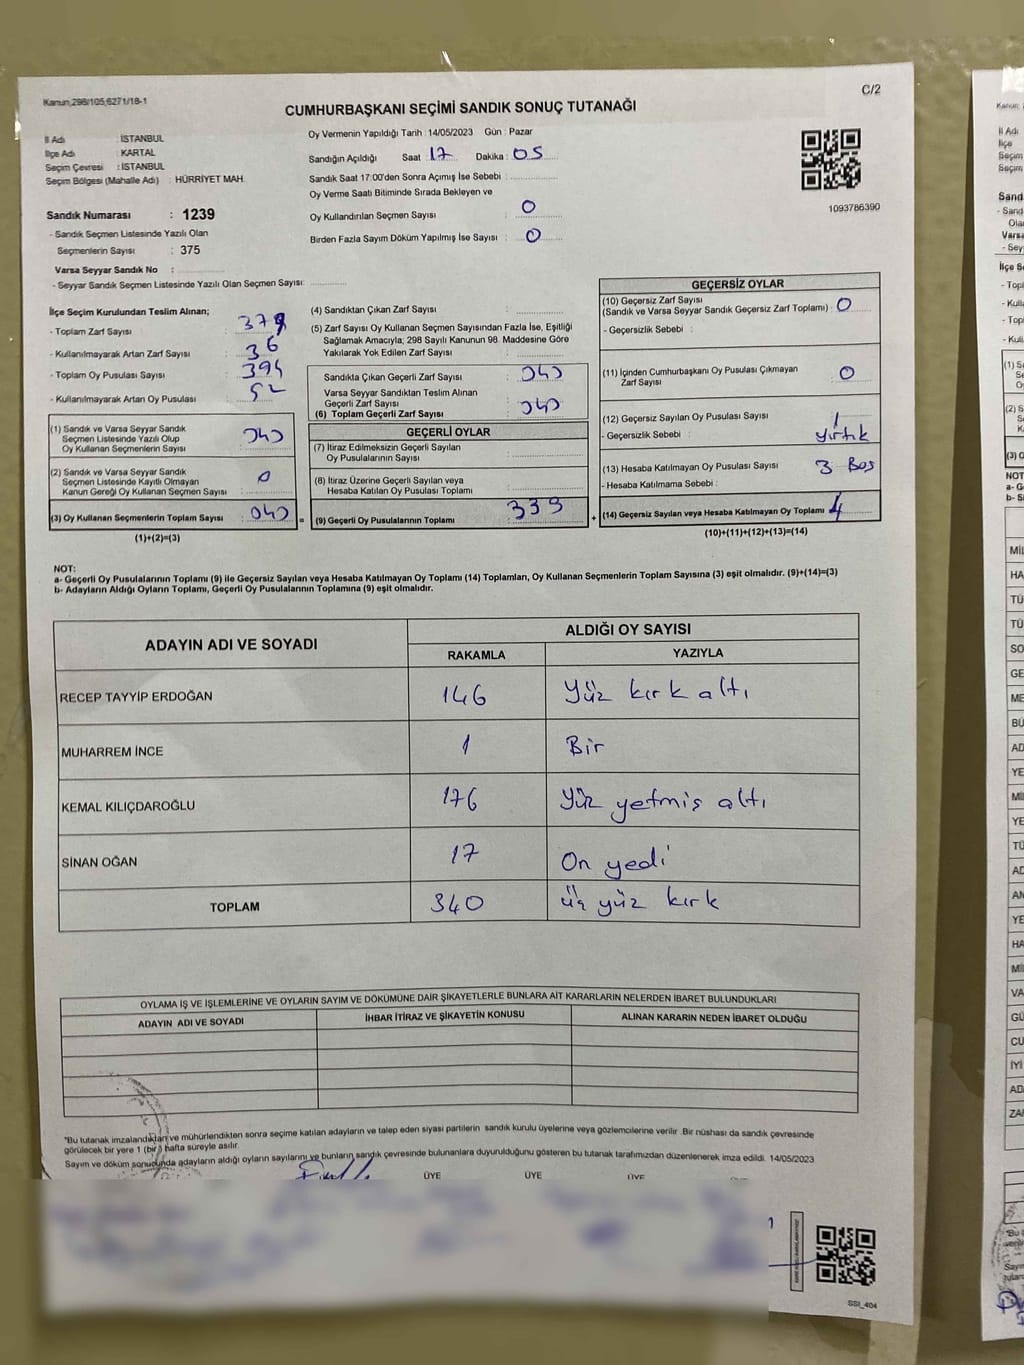 Kanun;298/105,6271/18-1
C/2
CUMHURBAŞKANI SEÇİMİ SANDIK SONUÇ TUTANAĞI
İl Adı : İSTANBUL
İlçe Adı : KARTAL
Seçim Çevresi : İSTANBUL
Seçim Bölgesi (Mahalle Adı) : HÜRRİYET MAH.
Sandık Numarası : 1239
- Sandık Seçmen Listesinde Yazılı Olan
Seçmenlerin Sayısı : 375
Varsa Seyyar Sandık No :
- Seyyar Sandık Seçmen Listesinde Yazılı Olan Seçmen Sayısı:
Oy Vermenin Yapıldığı Tarih : 14/05/2023 Gün : Pazar
Sandığın Açıldığı Saat 17 Dakika : 05
Sandık Saat 17:00'den Sonra Açımış İse Sebebi :
Oy Verme Saati Bitiminde Sırada Bekleyen ve
Oy Kullandırılan Seçmen Sayısı : 0
Birden Fazla Sayım Döküm Yapılmış İse Sayısı : 0
1093786390
İlçe Seçim Kurulundan Teslim Alınan;
- Toplam Zarf Sayısı :
- Kullanılmayarak Artan Zarf Sayısı : 36
- Toplam Oy Pusulası Sayısı : 394
- Kullanılmayarak Artan Oy Pusulası : 52
(1) Sandık ve Varsa Seyyar Sandık
Seçmen Listesinde Yazılı Olup
Oy Kullanan Seçmenlerin Sayısı :
(2) Sandık ve Varsa Seyyar Sandık
Seçmen Listesinde Kayıtlı Olmayan
Kanun Gereği Oy Kullanan Seçmen Sayısı : 0
(3) Oy Kullanan Seçmenlerin Toplam Sayısı :
(1)+(2)=(3)
(4) Sandıktan Çıkan Zarf Sayısı :
(5) Zarf Sayısı Oy Kullanan Seçmen Sayısından Fazla İse, Eşitliği
Sağlamak Amacıyla; 298 Sayılı Kanunun 98. Maddesine Göre
Yakılarak Yok Edilen Zarf Sayısı :
Sandıkta Çıkan Geçerli Zarf Sayısı :
Varsa Seyyar Sandıktan Teslim Alınan
Geçerli Zarf Sayısı
(6) Toplam Geçerli Zarf Sayısı :
GEÇERLİ OYLAR
(7) İtiraz Edilmeksizin Geçerli Sayılan
Oy Pusulalarının Sayısı :
(8) İtiraz Üzerine Geçerli Sayılan veya
Hesaba Katılan Oy Pusulası Toplamı :
(9) Geçerli Oy Pusulalarının Toplamı 339
GEÇERSİZ OYLAR
(10) Geçersiz Zarf Sayısı
(Sandık ve Varsa Seyyar Sandık Geçersiz Zarf Toplamı) : 0
- Geçersizlik Sebebi :
(11) İçinden Cumhurbaşkanı Oy Pusulası Çıkmayan
Zarf Sayısı : 0
(12) Geçersiz Sayılan Oy Pusulası Sayısı : 1
- Geçersizlik Sebebi : yırtık
(13) Hesaba Katılmayan Oy Pusulası Sayısı : 3 Boş
- Hesaba Katılmama Sebebi :
(14) Geçersiz Sayılan veya Hesaba Katılmayan Oy Toplamı : 4
(10)+(11)+(12)+(13)=(14)
NOT:
a- Geçerli Oy Pusulalarının Toplamı (9) ile Geçersiz Sayılan veya Hesaba Katılmayan Oy Toplamı (14) Toplamları, Oy Kullanan Seçmenlerin Toplam Sayısına (3) eşit olmalıdır. (9)+(14)=(3)
b- Adayların Aldığı Oyların Toplamı, Geçerli Oy Pusulalarının Toplamına (9) eşit olmalıdır.
ADAYIN ADI VE SOYADI
ALDIĞI OY SAYISI
RAKAMLA YAZIYLA
RECEP TAYYİP ERDOĞAN 146 Yüz kırk altı
MUHARREM İNCE 1 Bir
KEMAL KILIÇDAROĞLU 176 Yüz yetmiş altı
SİNAN OĞAN 17 On yedi
TOPLAM 340 üç yüz kırk
OYLAMA İŞ VE İŞLEMLERİNE VE OYLARIN SAYIM VE DÖKÜMÜNE DAİR ŞİKAYETLERLE BUNLARA AİT KARARLARIN NELERDEN İBARET BULUNDUKLARI
ADAYIN ADI VE SOYADI İHBAR İTİRAZ VE ŞİKAYETİN KONUSU ALINAN KARARIN NEDEN İBARET OLDUĞU
"Bu tutanak imzalandıktan ve mühürlendikten sonra seçime katılan adayların ve talep eden siyasi partilerin sandık kurulu üyelerine veya gözlemcilerine verilir .Bir nüshası da sandık çevresinde
görülecek bir yere 1 (bir ) hafta süreyle asılır.
Sayım ve döküm sonucunda adayların aldığı oyların sayılarını ve bunların sandık çevresinde bulunanlara duyurulduğunu gösteren bu tutanak tarafımızdan düzenlenerek imza edildi. 14/05/2023
ÜYE ÜYE ÜYE
SSI_404